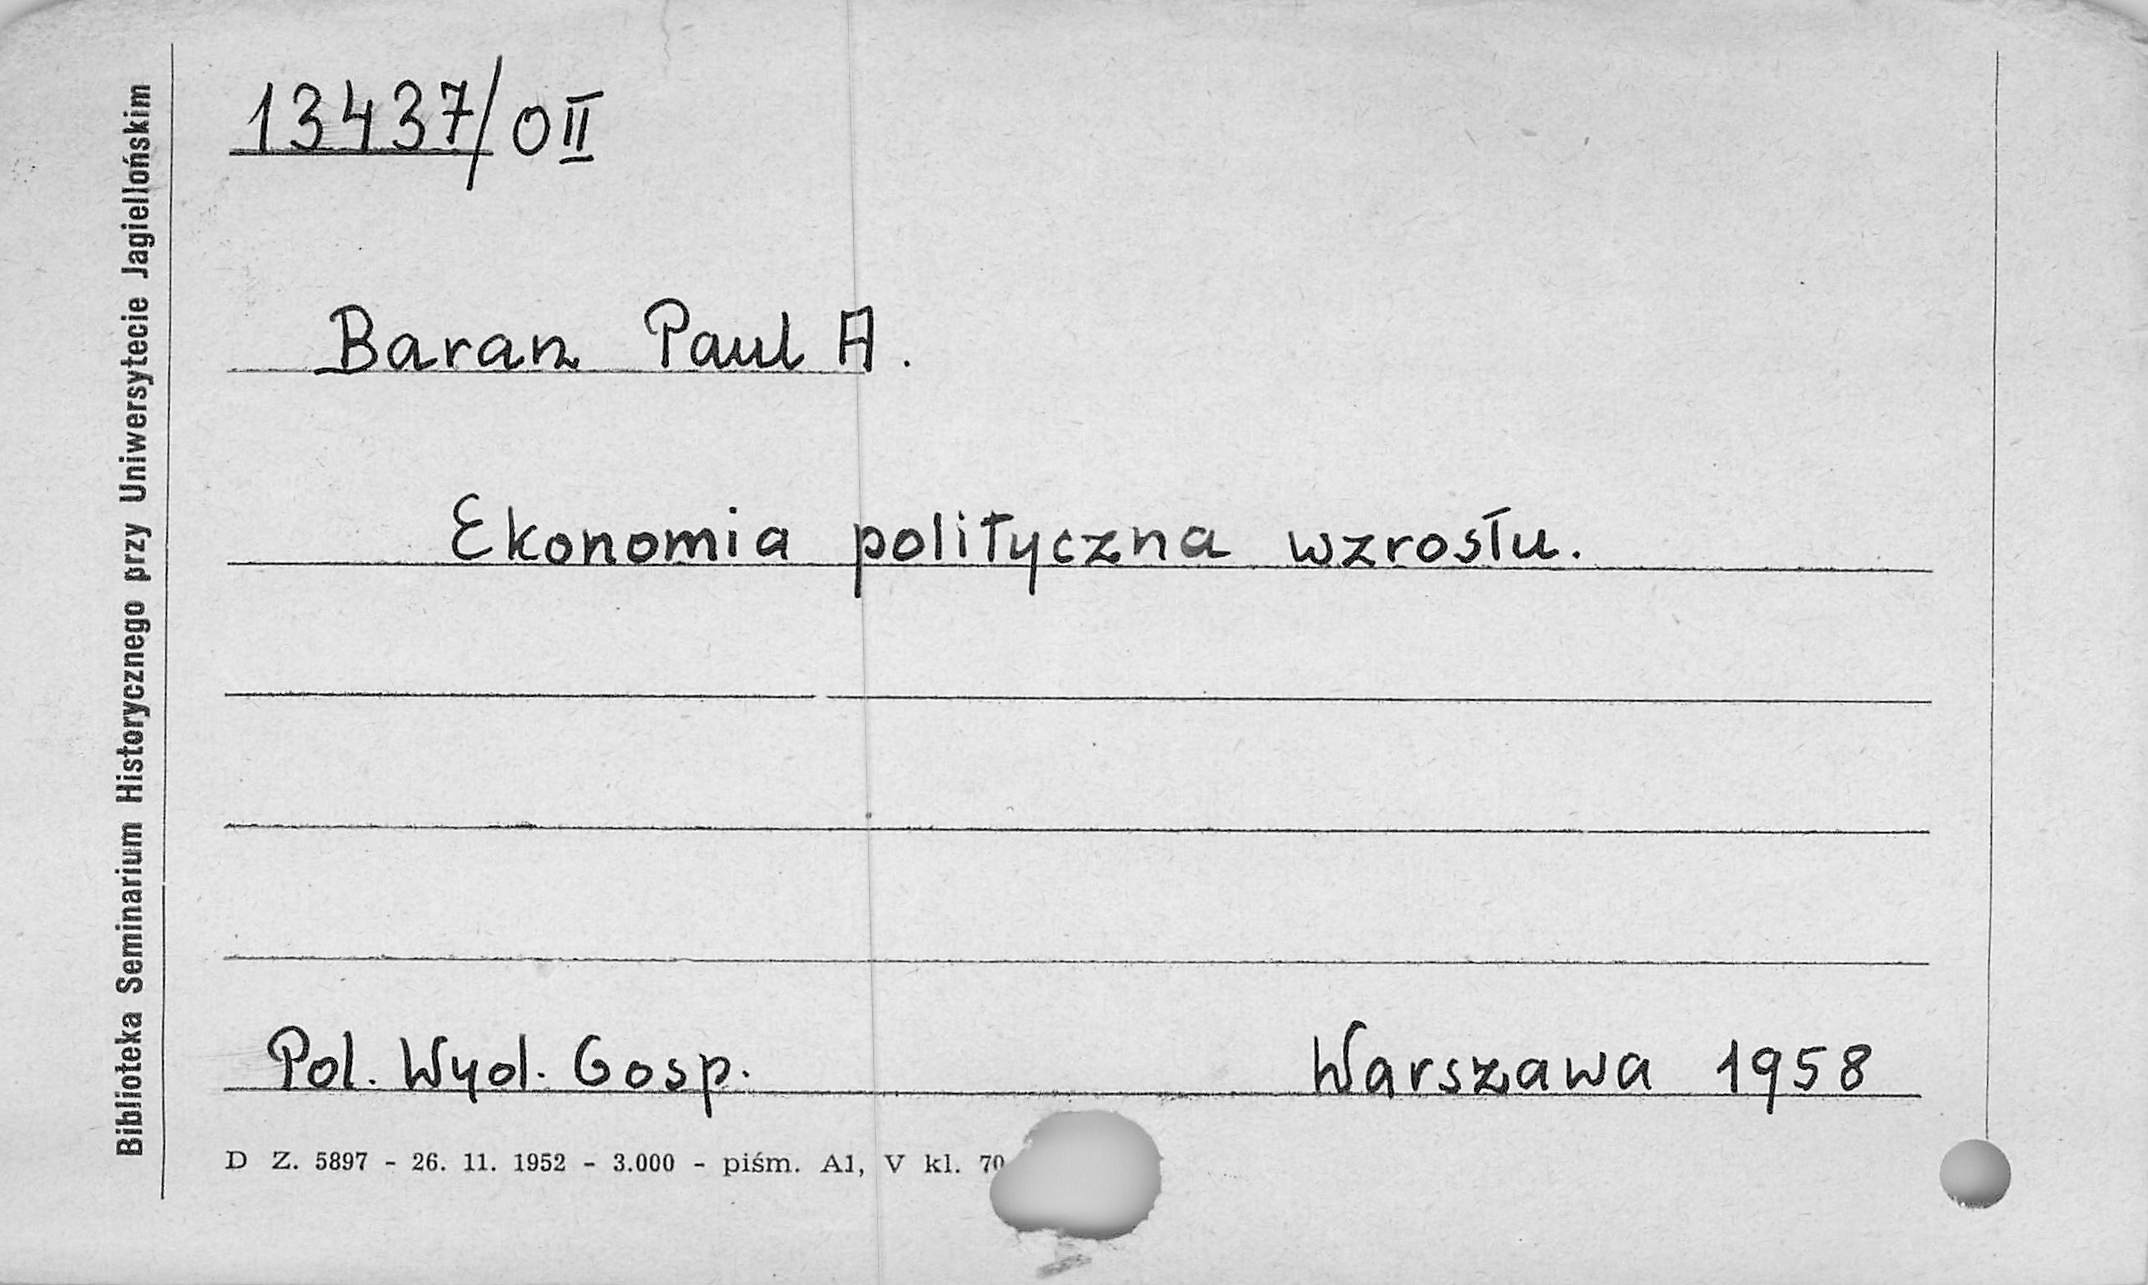 Biblioteka Seminarium Historycznego przy Uniwersytecie Jagiellońskim
13437/OII
Baran Paul A.
Ekonomia polityczna wzrostu.
Pol. Wyd. Gosp. Warszawa 1958
D Z. 5897 - 26. 11. 1952 - 3.000 - piśm. A1, V kl. 70